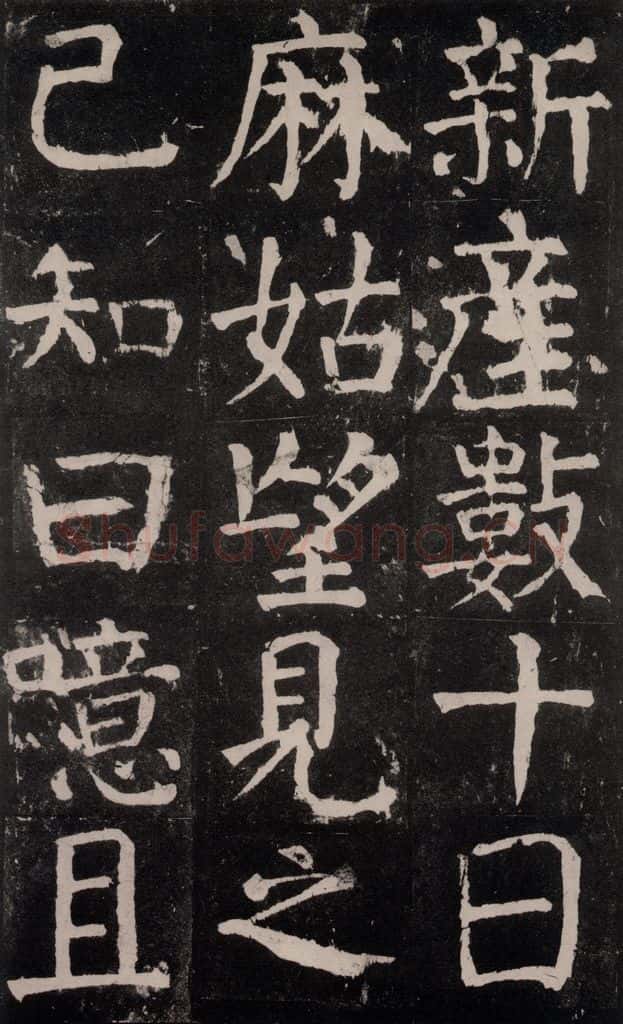 新產數十日
麻姑望見之
已知曰噫且
Shufawang.CN